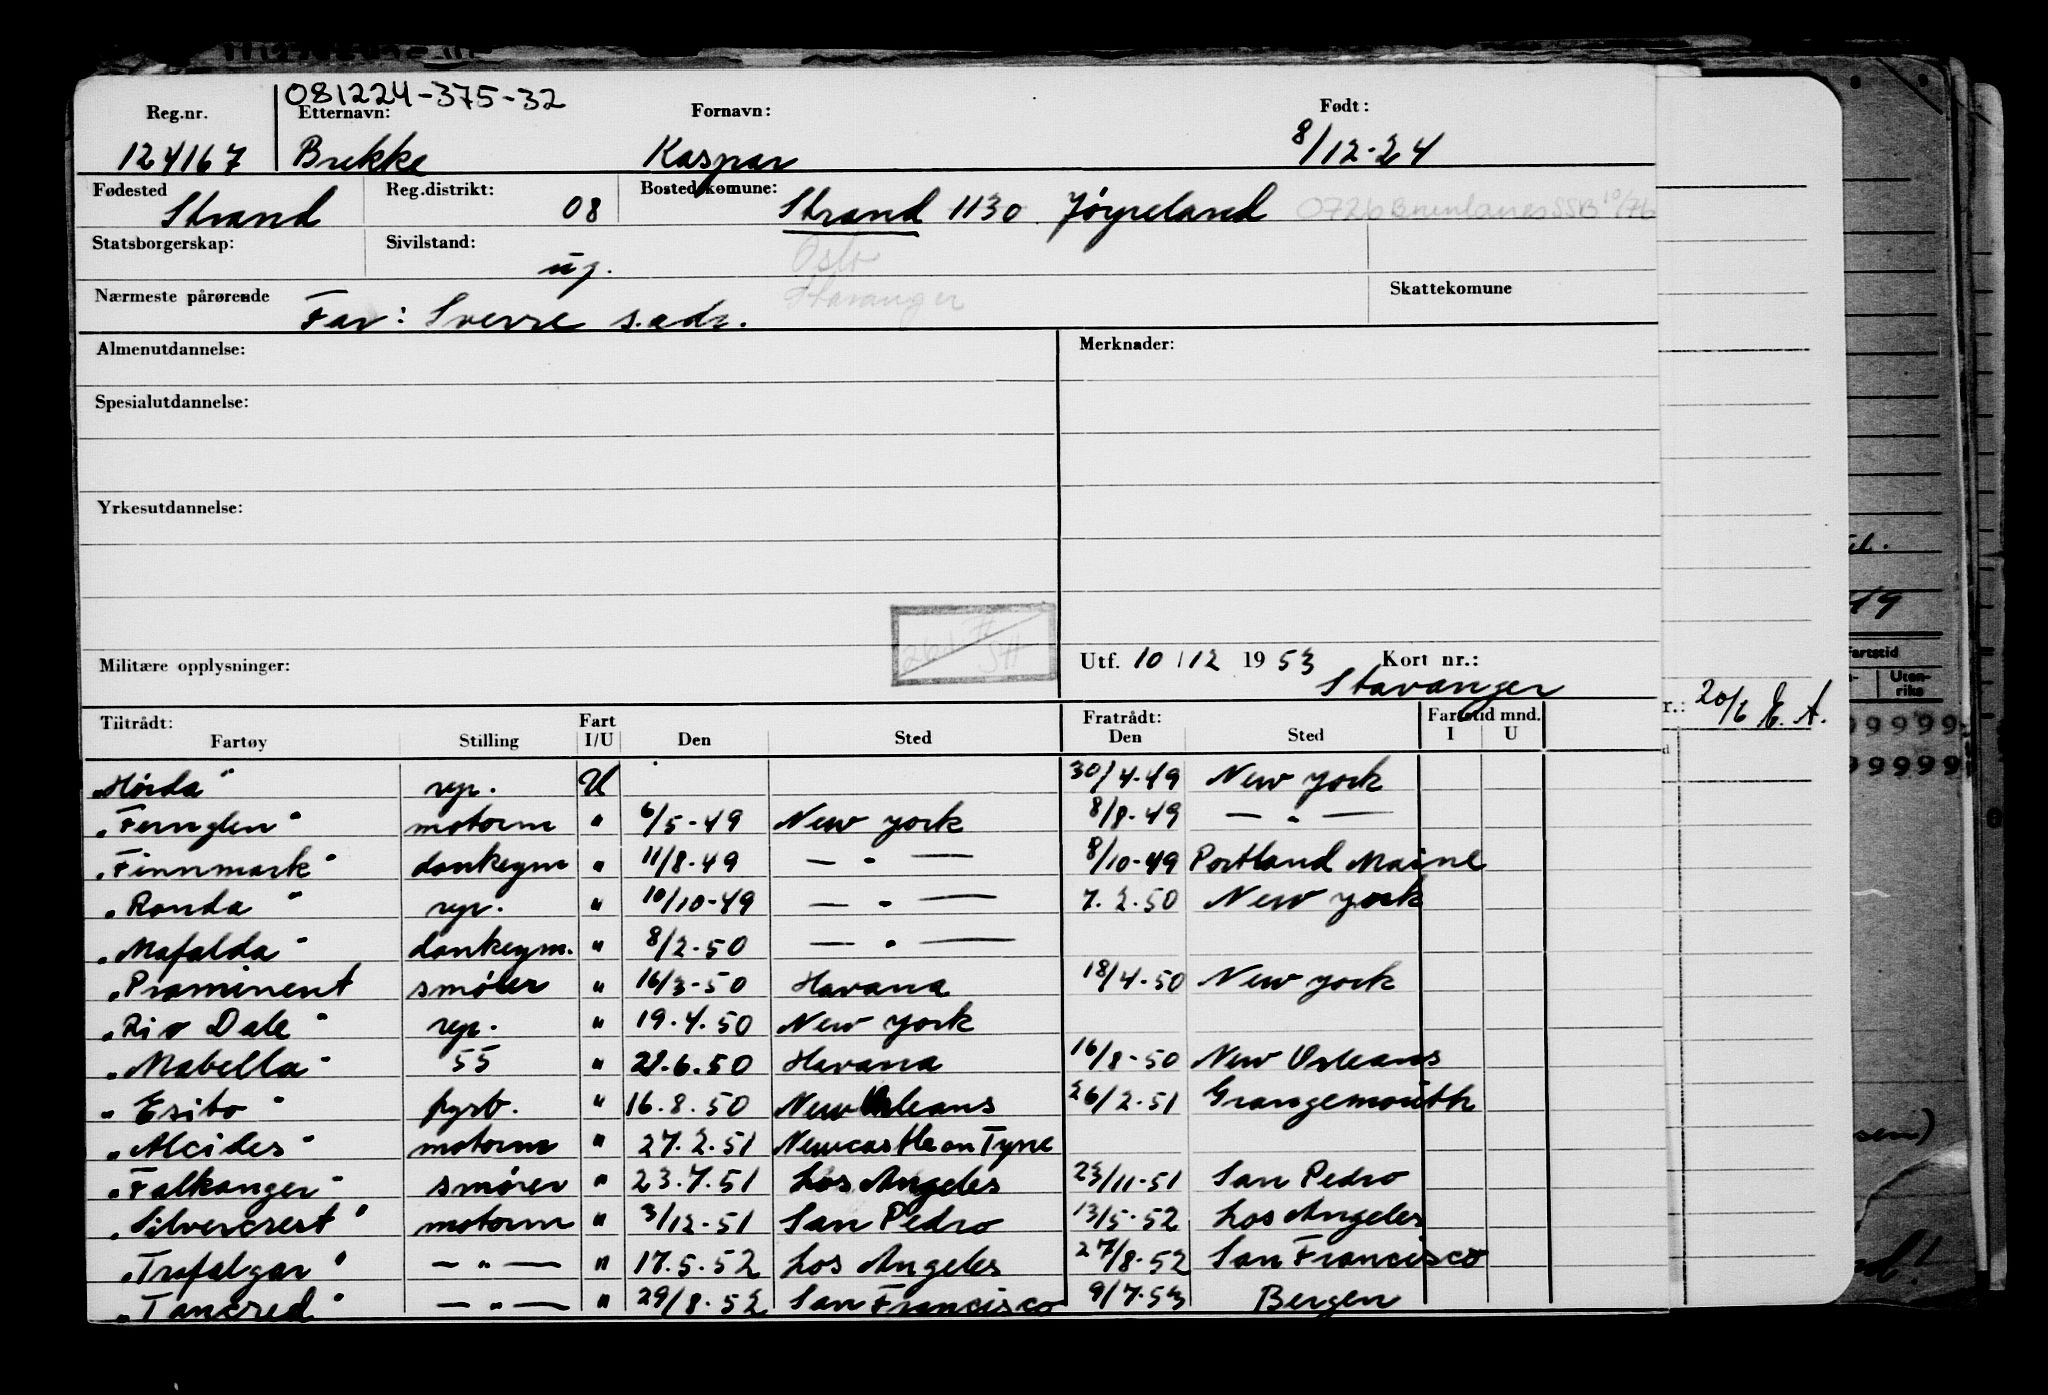 081224-375-32
Reg.nr. Etternavn: Fornavn: Født:
124167 Brekke Kaspar 8/12-24
Fødested Reg.distrikt: Bostedskomune:
Strand 08 Strand 1130 Jørpeland 0726 Brunlanes SSB 10/76
Statsborgerskap: Sivilstand:
ug. Oslo
Nærmeste pårørende Stavanger Skattekomune
Far: Sverre s.adr.
Almenutdannelse: Merknader:
Spesialutdannelse:
Yrkesutdannelse:
Militære opplysninger: Utf. 10/12 1953 Kort nr.:
Stavanger
r.: 20/6 E. A.
Tiltrådt: Fart Fratrådt: Fartstid mnd.
Fartøy Stilling I/U Den Sted Den Sted I U
"Hørda" rep. U 30/4-49 New York
"Fernglen" motorm " 6/5-49 New York 8/8-49 — " —
"Finnmark" donkeym " 11/8-49 — " — 8/10-49 Portland Maine
"Ronda" rep. " 10/10-49 — " — 7.2.50 New York
"Mafalda" donkeym. " 8/2-50 — " —
"Prominent smører " 16/3-50 Havana 18/4-50 New York
"Rio Dale" rep. " 19.4.50 New York
"Mabella" 55 " 21.6.50 Havana 16/8-50 New Orleans
"Esito" fyrb. " 16.8.50 New Orleans 26/2-51 Grangemouth
"Alcides" motorm " 27.2.51 Newcastle on Tyne
"Falkanger" smører " 23.7.51 Los Angeles 23/11-51 San Pedro
"Silvercrest" motorm " 3/12-51 San Pedro 13/5-52 Los Angeles
"Trafalgar" — " — " 17.5.52 Los Angeles 27/8-52 San Francisco
"Tancred" — " — " 29/8-52 San Francisco 9/7-53 Bergen
49
Fartstid
Uten-
riks
99999
99999
sen)